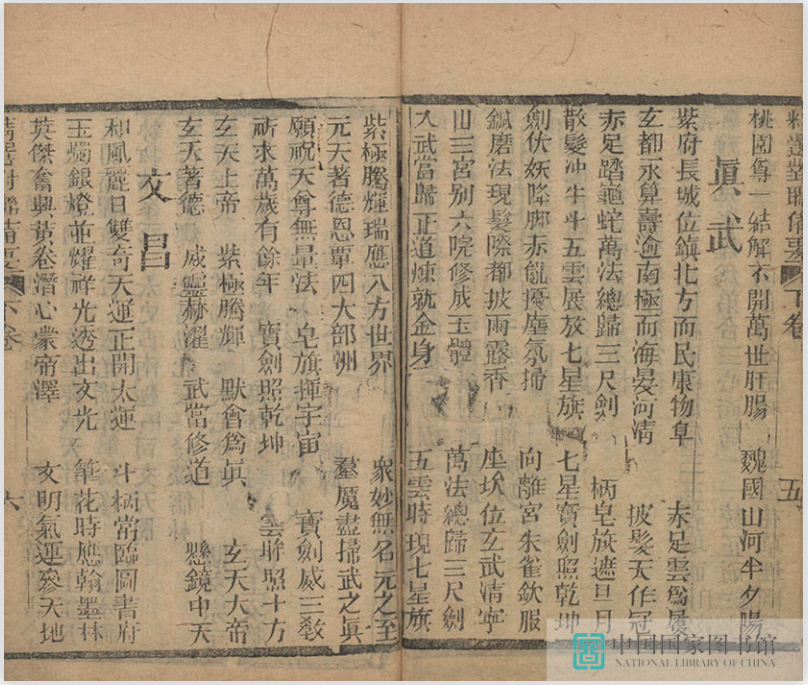 桃園尊一結解不開萬世肝腸 魏國山河半夕陽
眞武
紫府長城位鎮北方而民康物阜 赤足雲爲履
玄都永算壽逾南極而海晏河清 披髮天作冠
赤足踏龜蛇萬法總歸三尺劍 柄皂旗遮日月
散髮冲牛斗五雲展放七星旗 七星寶劍照乾坤
劍伏妖降脚赤能擾塵氛掃 向離宮朱雀欽服
鍼磨法現髮際都披雨露香 座坎位玄武清寧
山三宮別六院修成玉體 萬法總歸三尺劍
入武當歸正道煉就金身 五雲時現七星旗
紫極騰輝瑞應八方世界 衆妙無名元之至
元天著德恩覃四大部洲 羣魔盡掃武之眞
願祝天尊無量法 皂旗揮宇宙 寶劍威三教
祈求萬歲有餘年 寶劍照乾坤 雲眸照十方
玄天上帝 紫極騰輝 默會爲眞 玄天大帝
玄天著德 威靈赫濯 武當修道 懸鏡中天
文昌
和風麗日雙奇天運正開太運 斗柄常臨圖書府
玉燭銀燈並耀祥光透出文光 筆花時應翰墨林
英傑奮興黃卷潛心蒙帝澤 文明氣運參天地
下卷
五
六
中国国家图书馆
NATIONAL LIBRARY OF CHINA